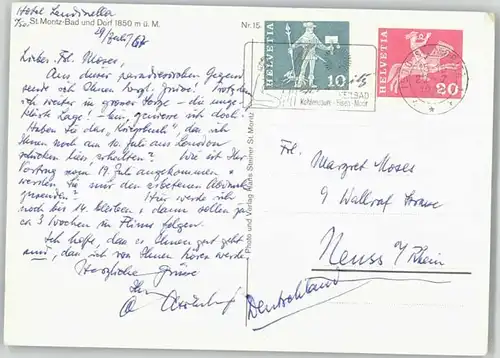 Hotel Laudinella
St. Moritz-Bad und Dorf 1850 m ü. M.
Nr. 15.
29/Juli/67.
Liebes Frl. Moses,
Aus dieser paradiesischen Gegend
sende ich Ihnen herzl. Grüsse! Trotzdem
ich weiter in grosser Sorge – die unge-
klärte Lage! – bin, geniesse ich doch.
Haben Sie das " ", das ich
Ihnen noch am 10. Juli aus London
schicken liess, erhalten? Wie ist Ihr
Vortrag vom 19. Juli angekommen &
werden Sie mir den erbetenen
zusenden? Hier werde ich
noch bis 14. bleiben, dann sollen ja
ca 3 Wochen in Flims folgen.
Ich hoffe, dass es Ihnen gut geht
und, dass ich von Ihnen hören werde
Herzliche Grüsse
Ihr
Photo und Verlag Hans Steiner St. Moritz
HELVETIA
10
HELVETIA
20
HEILBAD
Frl.
Margret Moses
9 Wallraf Strasse
Neuss a/Rhein
Deutschland